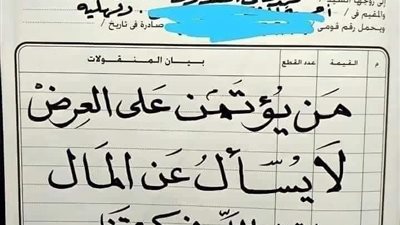 إلى زوجها السيد /
والمقيم فى / دقهلية
ويحمل رقم قومى صادرة فى تاريخ /
م القيمة عدد القطع بيان المنقولات
مَن يُؤتَمَن عَلى العِرضْ
لَا يُسّألُ عَن المَال